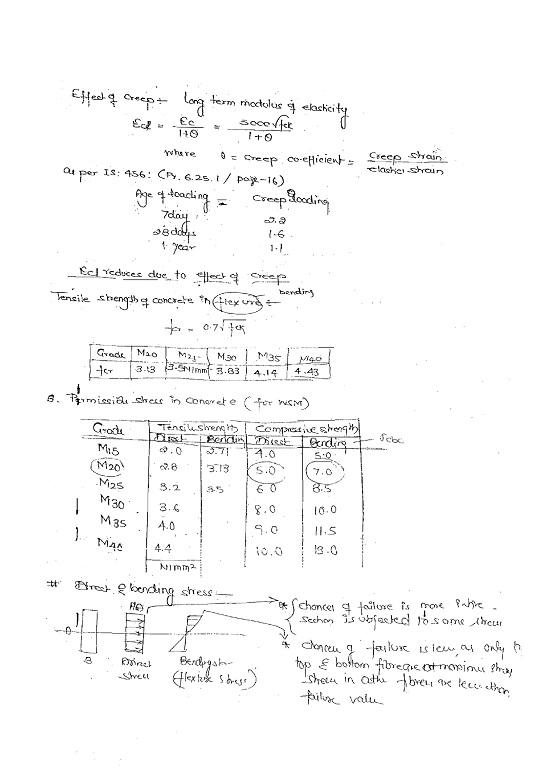 Effect of creep :- long term modulus of elasticity
Ecl = Ec / 1+θ = 5000√fck / 1+θ
where θ = creep co-efficient = Creep strain / elastic strain
as per IS: 456: (Pr. 6.25.1 / page-16)
Age of loading = Creep loading
7day 2.2
28 days 1.6
1 year 1.1
Ecl reduces due to effect of creep
bending
Tensile strength of concrete in flexure :-
fcr = 0.7√fck
Grade M20 M25 M30 M35 M40
fcr 3.13 3.5N/mm² 3.83 4.14 4.43
B. Permissible stress in concrete (for WSM)
Grade Tensile strength Compressive strength
Direct Bending Direct Bending σcbc
M15 2.0 2.71 4.0 5.0
M20 2.8 3.13 5.0 7.0
M25 3.2 3.5 6.0 8.5
M30 3.6 8.0 10.0
M35 4.0 9.0 11.5
M40 4.4 10.0 13.0
N/mm²
# Direct & bending stress :-
* chances of failure is more entire
section is subjected to same stress
* chances of failure is less, as only
top & bottom fibre are at maximum
stress in other fibres are less than
failure value
B Direct stress
Bending
(flexture stress)